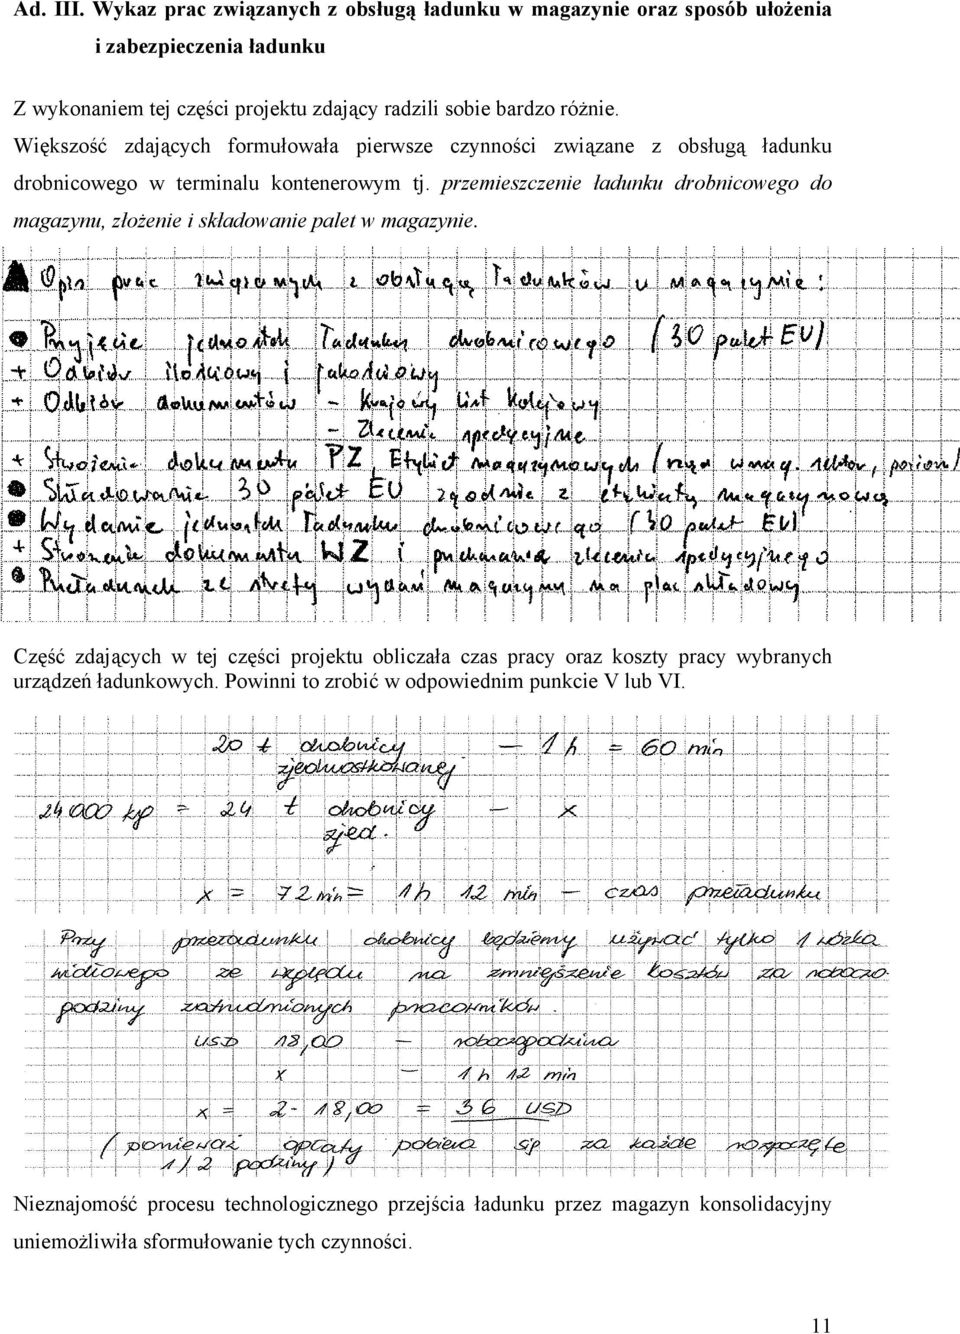 Ad. III. Wykaz prac związanych z obsługą ładunku w magazynie oraz sposób ułożenia
i zabezpieczenia ładunku
Z wykonaniem tej części projektu zdający radzili sobie bardzo różnie.
Większość zdających formułowała pierwsze czynności związane z obsługą ładunku
drobnicowego w terminalu kontenerowym tj. przemieszczenie ładunku drobnicowego do
magazynu, złożenie i składowanie palet w magazynie.
Opis prac związanych z obsługą ładunków w magazynie:
Przyjęcie jednostek ładunku drobnicowego (30 palet EU)
+ Odbiór ilościowy i jakościowy
+ Odbiór dokumentów – Krajowy list kolejowy
– Zlecenie spedycyjne
+ Stworzenie dokumentu PZ, Etykiet magazynowych (rząd w mag. sektor, poziom)
Składowanie 30 palet EU zgodnie z etykietą magazynową
Wydanie jednostek ładunku drobnicowego (30 palet EU)
+ dokumentu WZ i zlecenia spedycyjnego
Przeładunek ze strefy wydań magazynu na plac składowy
Część zdających w tej części projektu obliczała czas pracy oraz koszty pracy wybranych
urządzeń ładunkowych. Powinni to zrobić w odpowiednim punkcie V lub VI.
20 t drobnicy – 1 h = 60 min
zjednostkowanej
24 000 kg = 24 t drobnicy – x
zjed.
x = 72 min = 1h 12 min – czas przeładunku
Przy przeładunku drobnicy będziemy używać tylko 1 wózka
widłowego ze względu na zmniejszenie kosztów za roboczo
godziny zatrudnionych pracowników.
USD 18,00 – roboczogodzina
x – 1 h 12 min
x = 2 · 18,00 = 36 USD
(ponieważ opłaty pobiera się za każde rozpoczęte
1/2 godziny)
Nieznajomość procesu technologicznego przejścia ładunku przez magazyn konsolidacyjny
uniemożliwiła sformułowanie tych czynności.
11